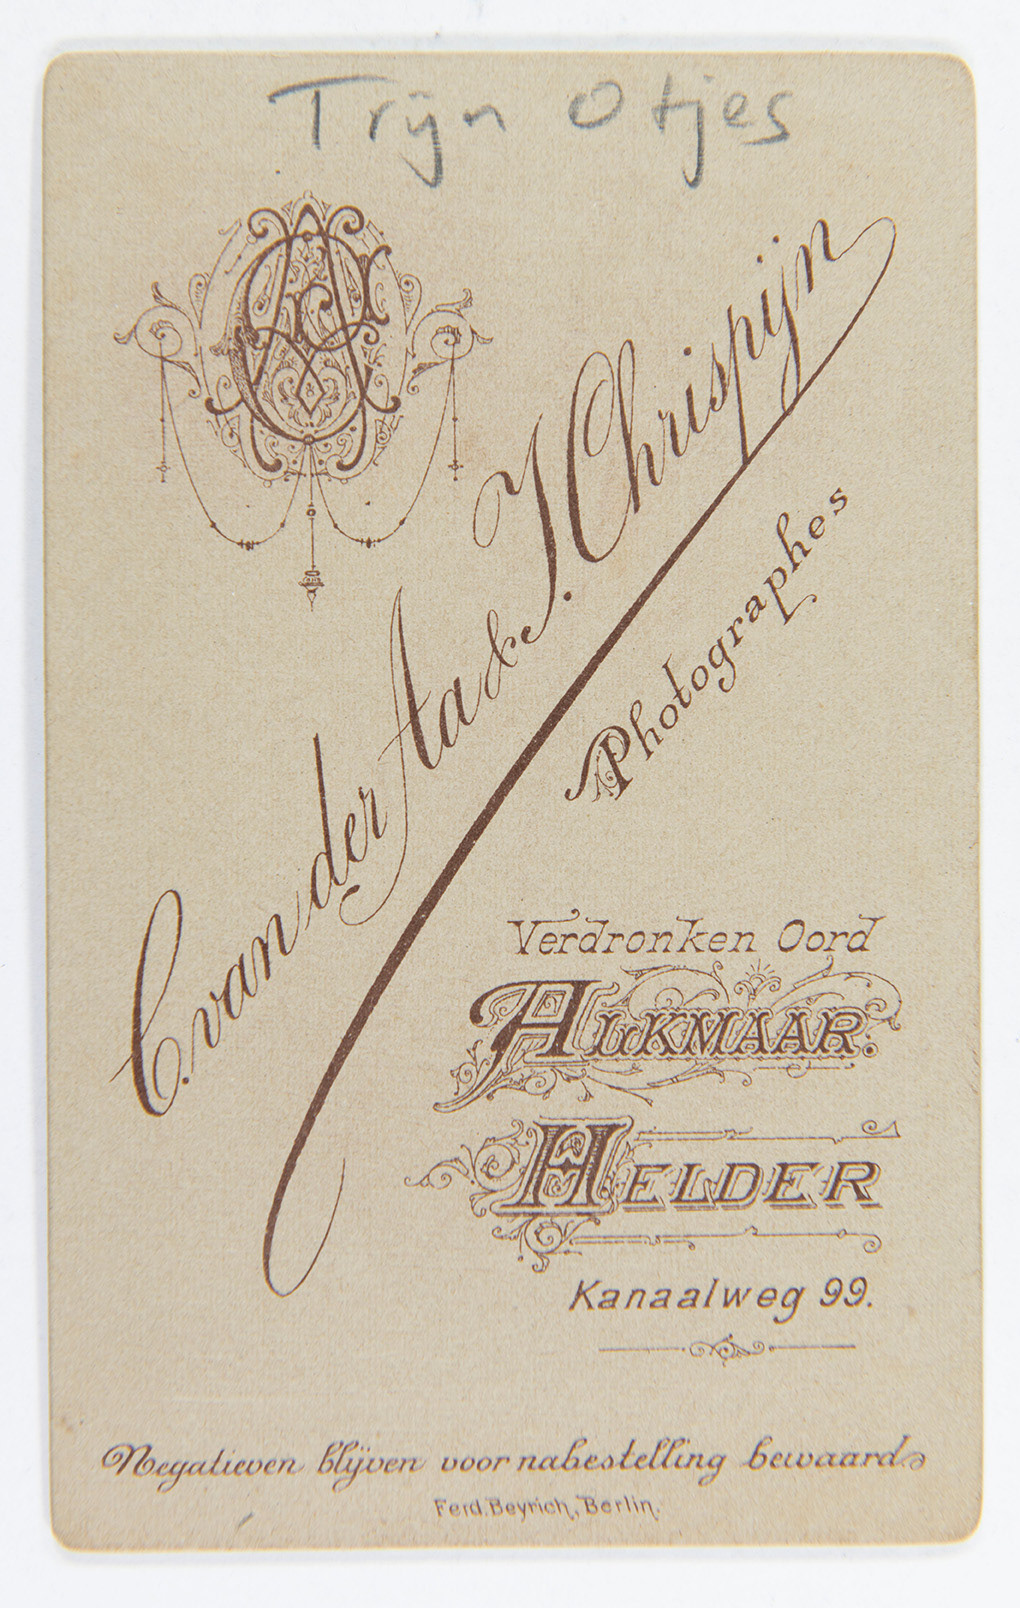 Trijn Otjes
C. van der Aa & J. Chrispijn
Photographes
Verdronken Oord
ALKMAAR:
HELDER
Kanaalweg 99.
Negatieven blijven voor nabestelling bewaard
Ferd. Beyrich, Berlin.